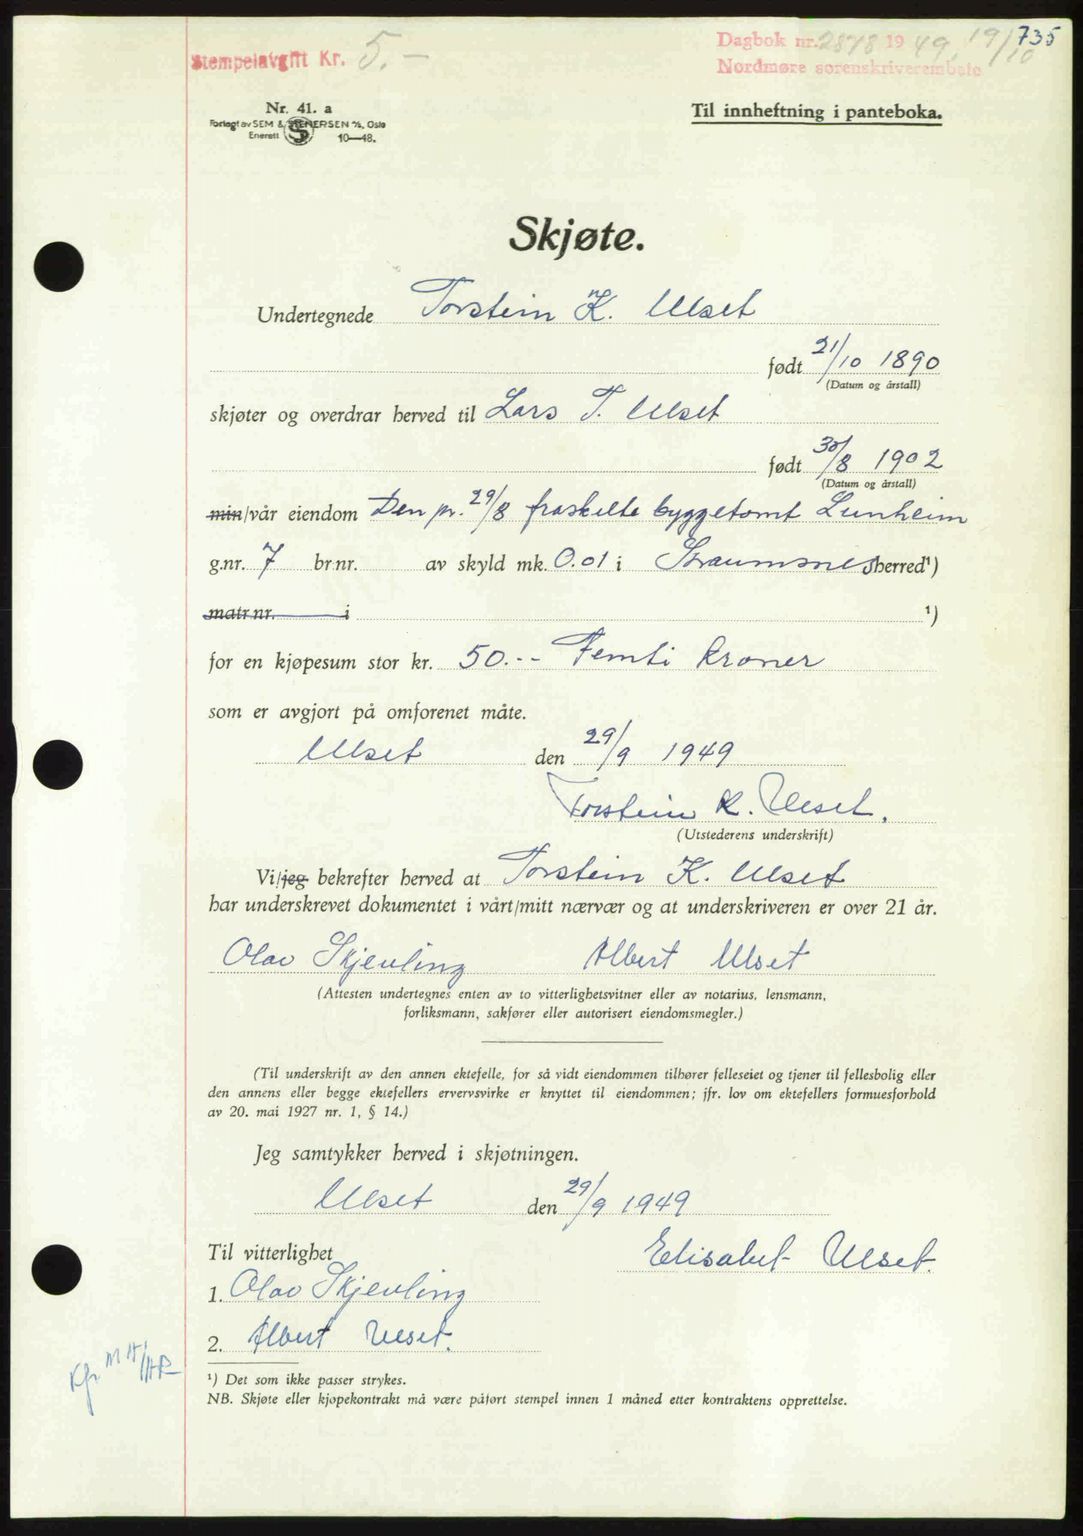 735
Stempelavgift Kr. 5.-
Dagbok nr. 2878 1949. 19/10
Nordmøre sorenskriverembete
Nr. 41. a
Forlagt av SEM & STENERSEN A/S, Oslo
Enerett S 10—48.
Til innheftning i panteboka.
Skjøte.
Undertegnede Torstein K. Ulset
født 21/10 1890
(Datum og årstall)
skjøter og overdrar herved til Lars T. Ulset
født 30/8 1902
(Datum og årstall)
min/vår eiendom Den pr. 29/8 fraskilte byggetomt Lunheim
g.nr. 7 br.nr. av skyld mk. 0.01 i Straumsnes herred¹)
matr.nr. i ¹)
for en kjøpesum stor kr. 50.-- Femti kroner
som er avgjort på omforenet måte.
Ulset den 29/9 1949
Torstein K. Ulset.
(Utstederens underskrift)
Vi/jeg bekrefter herved at Torstein K. Ulset
har underskrevet dokumentet i vårt/mitt nærvær og at underskriveren er over 21 år.
Olav Skjevling Albert Ulset
(Attesten undertegnes enten av to vitterlighetsvitner eller av notarius, lensmann,
forliksmann, sakfører eller autorisert eiendomsmegler.)
(Til underskrift av den annen ektefelle, for så vidt eiendommen tilhører felleseiet og tjener til fellesbolig eller
den annens eller begge ektefellers ervervsvirke er knyttet til eiendommen; jfr. lov om ektefellers formuesforhold
av 20. mai 1927 nr. 1, § 14.)
Jeg samtykker herved i skjøtningen.
Ulset den 29/9 1949
Til vitterlighet Elisabet Ulset.
1. Olav Skjevling
2. Albert Ulset.
¹) Det som ikke passer strykes.
NB. Skjøte eller kjøpekontrakt må være påført stempel innen 1 måned etter kontraktens opprettelse.